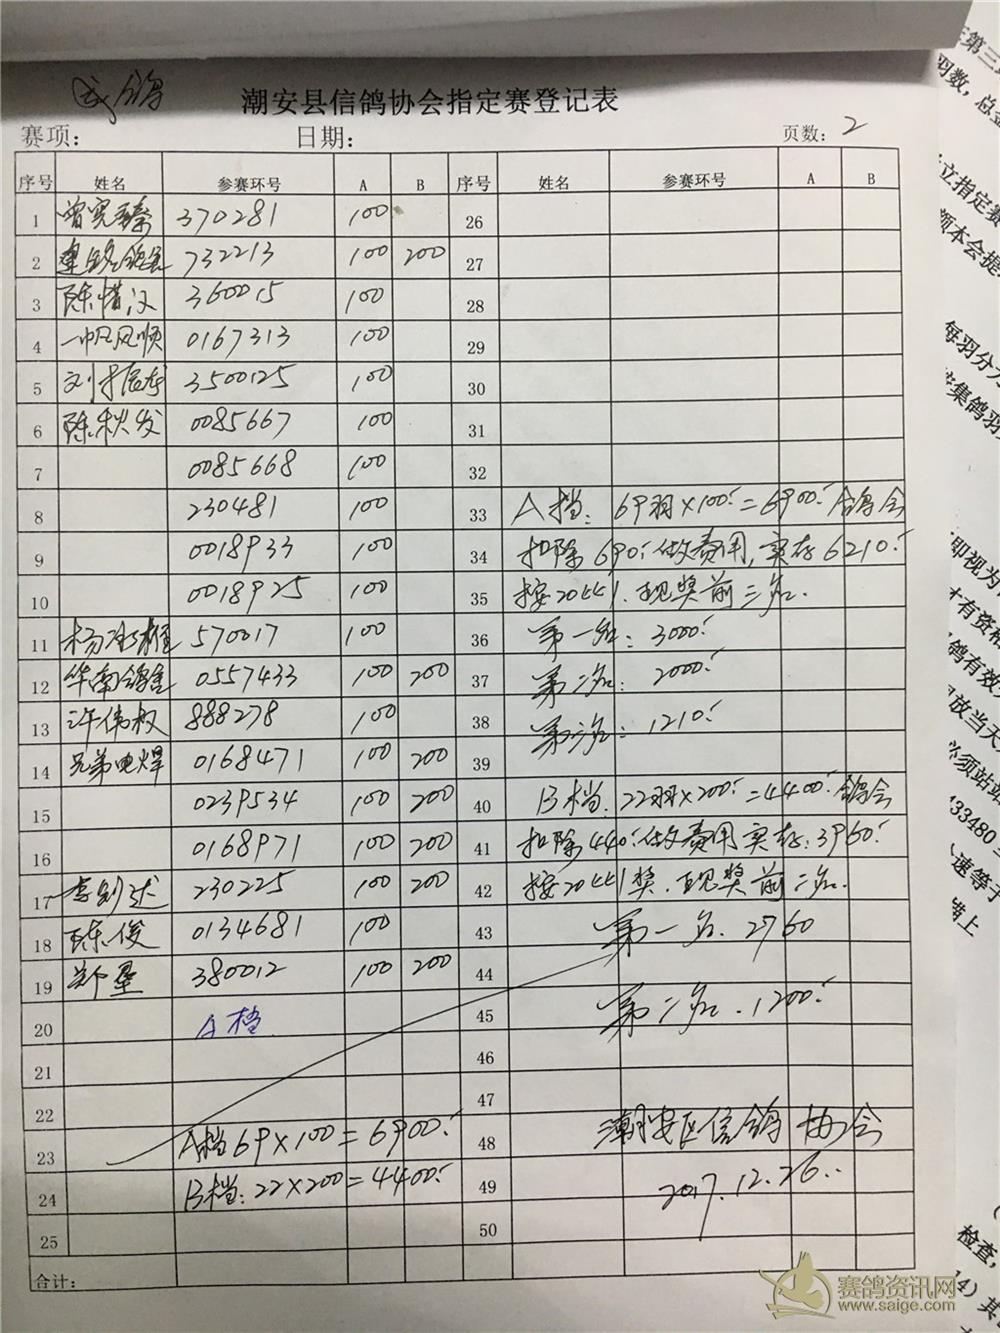 成鸽
潮安县信鸽协会指定赛登记表
赛项: 日期: 页数: 2
序号 姓名 参赛环号 A B 序号 姓名 参赛环号 A B
1 曾宪臻 370281 100 26
2 建骆鸽舍 732213 100 200 27
3 陈惜汉 360015 100 28
4 一帆风顺 0167313 100 29
5 刘 3500125 100 30
6 陈秋发 0085667 100 31
7 0085668 100 32
8 230481 100 33 A档: 69羽×100.=6900. 鸽会
9 0018933 100 34 扣除690.做费用,实存6210.
10 0018925 100 35 按20 1.现奖前三名.
11 杨 570017 100 36 第一名: 3000.
12 华南鸽舍 0557433 100 200 37 第二名: 2000.
13 许伟权 888278 100 38 第三名: 1210.
14 兄弟电焊 0168471 100 200 39
15 0239534 100 200 40 B档: 22羽×200.=4400. 鸽会
16 0168971 100 200 41 扣除440.做费用实存:3960.
17 李 230225 100 200 42 按20 1奖.现奖前二名.
18 陈俊 0134681 100 43 第一名. 2760
19 郑 380012 100 200 44
20 A档 45 第二名. 1200.
21 46
22 47
23 A档69×100=6900. 48 潮安区信鸽协会
24 B档:22×200=4400. 49 2017.12.26..
25 50
合计:
第三
羽数,总
立指定赛
本会提
每羽分
集鸽羽
即视为
有资格
鸽有效
放当天
须站
433480
速等于
错上
检查,
14)其
赛鸽资讯网
www.saige.com